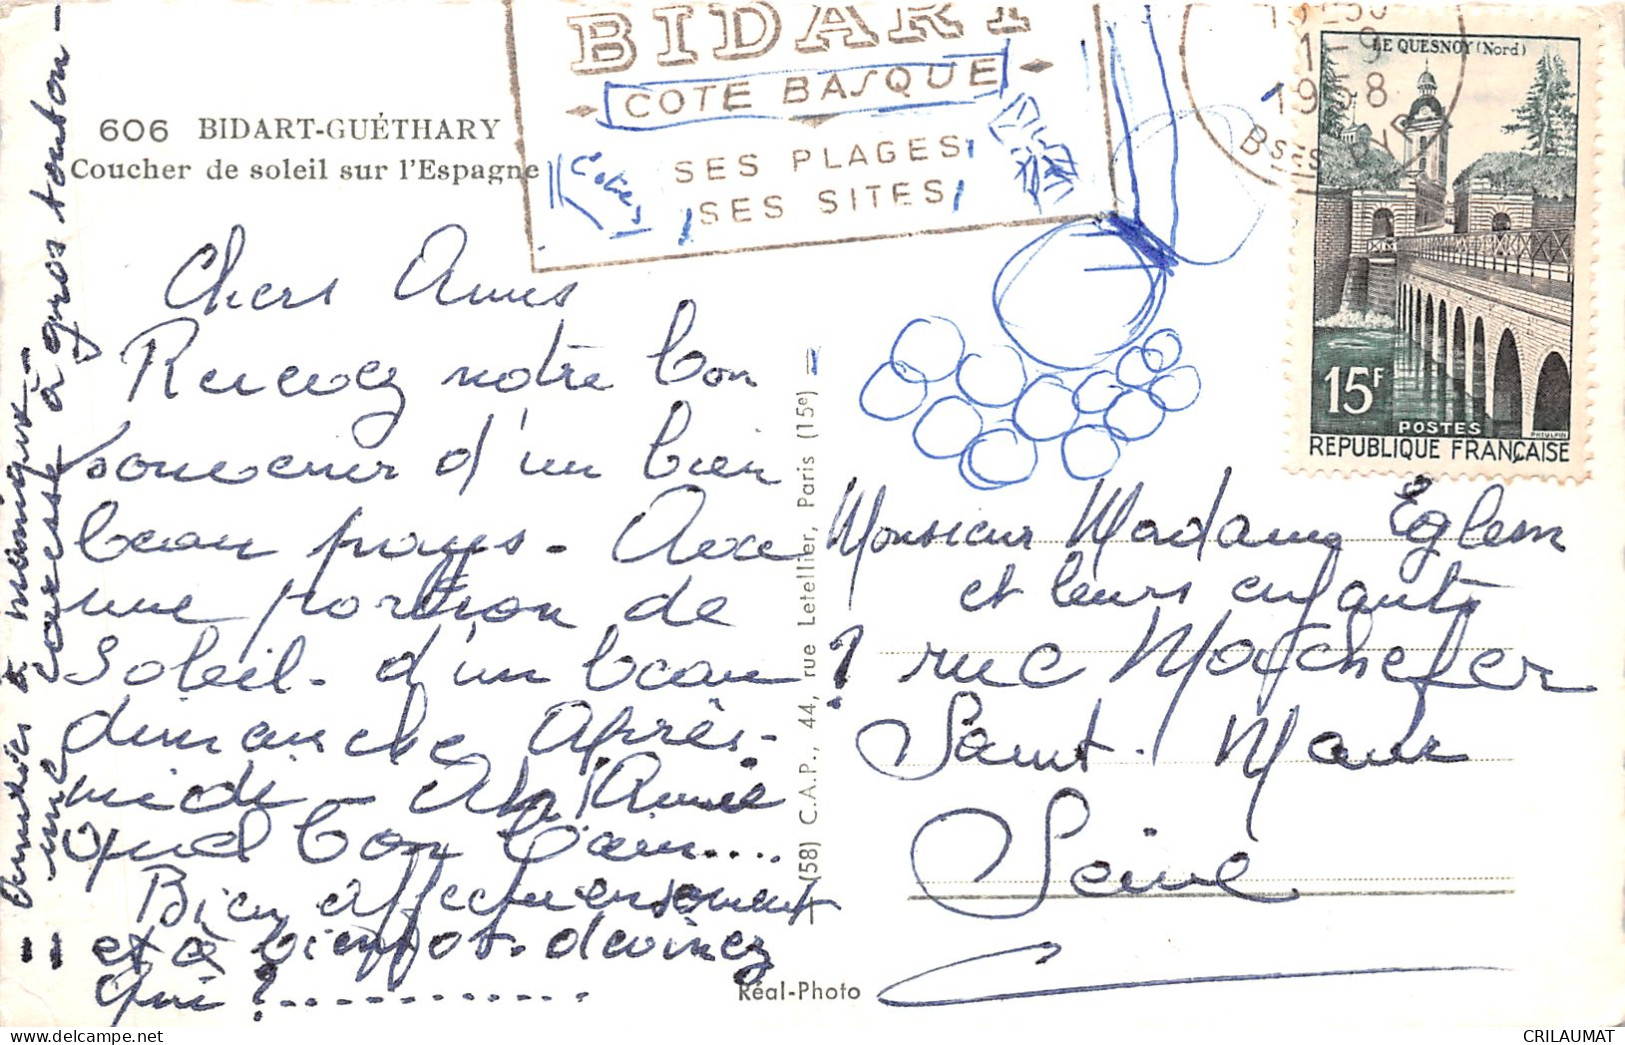 606 BIDART-GUÉTHARY
Coucher de soleil sur l'Espagne
BIDART
COTE BASQUE
SES PLAGES
SES SITES
Cotes
1-9
1958
LE QUESNOY (Nord)
15F
POSTES
REPUBLIQUE FRANÇAISE
Chers Amis
Recevez notre bon
souvenir d'un bien
beau pays - Avec
une portion de
Soleil - d'un beau
dimanche Après-
midi - Ah! Amie
quel bon bain....
Bien affectueusement
et à bientôt. devinez
qui ?.............
Amitiés à
une caresse à gros touton -
Monsieur Madame Eglem
et leurs enfants
? rue Mogchefer
Saint. Maur
Seine
(58) C.A.P., 44, rue Letellier, Paris (15e)
Réal-Photo
CRILAUMAT